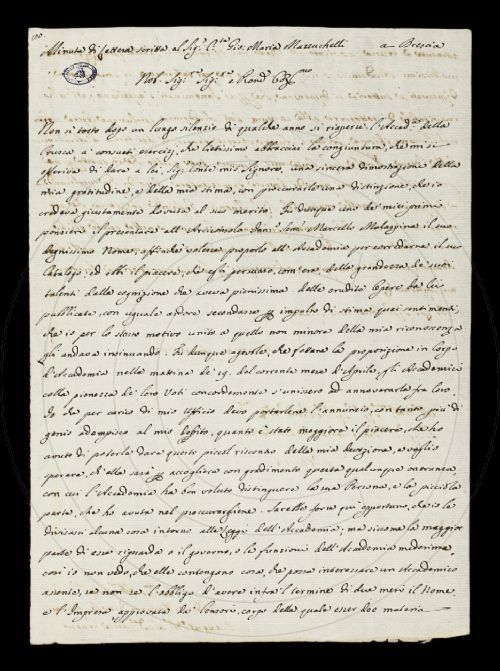 Minuta di Lettera scritta al Sig.r C.te Gio. Maria Mazzuchelli a Brescia
Nob. Sig.r Sig.r e Pron̄
Non sì tosto dopo un lungo silenzio di qualche anno si riaperse l'Accad.a della
Crusca a' consueti esercizj, che lietissimo abbracciai la congiuntura, che mi si
offeriva di dare a lei, Sig. Conte mio Signore, una sincera dimostrazione della
mia gratitudine, e della mia stima, con procurarle una distinzione, che io
credeva giustamente dovuta al suo merito. Fu dunque uno de' miei primi
pensieri il presentare all' Arciconsolo Marcello Malaspina il suo
degnissimo Nome, affinchè volesse proporlo all' Accademia per corredarne il suo
Catalogo, ed ebbi il piacere, che egli persuaso, com' era della grandezza de' suoi
talenti dalla cognizione che aveva pienissima delle erudite Opere da lei
pubblicate, con uguale ardore secondasse gl' impulsi di stima quei sentimenti,
che io per lo stesso motivo unito a quello non minore della mia riconoscenza
gli andava insinuando. Fu dunque agevole, che fattane la proposizione in Corpo
d'Accademia nella mattina de' 19. del corrente mese d'Aprile, gli Accademici
colla pienezza de' loro Voti concordemente s'unissero ad annoverarla fra loro.
Io che per carico di mio Ufficio devo portarlene l'annunzio, con tanto più di
genio adempisco al mio debito, quanto è stato maggiore il piacere, che ho
avuto di poterle dare questo piccol riscontro della mia devozione, e voglio
sperare, ch' ella sarà per accogliere con gradimento questa qualunque onoranza,
con cui l'Accademia ha ben voluto distinguere la sua Persona, e la piccola
parte, che ho avuta nel procurargliene. Sarebbe forse quì opportuno, che io le
divisassi alcuna cosa intorno alle Leggi dell' Accademia, ma siccome la maggior
parte di esse riguarda o il governo, o le funzioni dell' Accademia medesima,
così io non vedo, che elle contengano cosa, che possa interessare un Accademico
assente, se non se l'obbligo d'avere infra 'l termine di due mesi il Nome,
e l'Impresa approvata da' Censori, corpo della quale esser dee materia